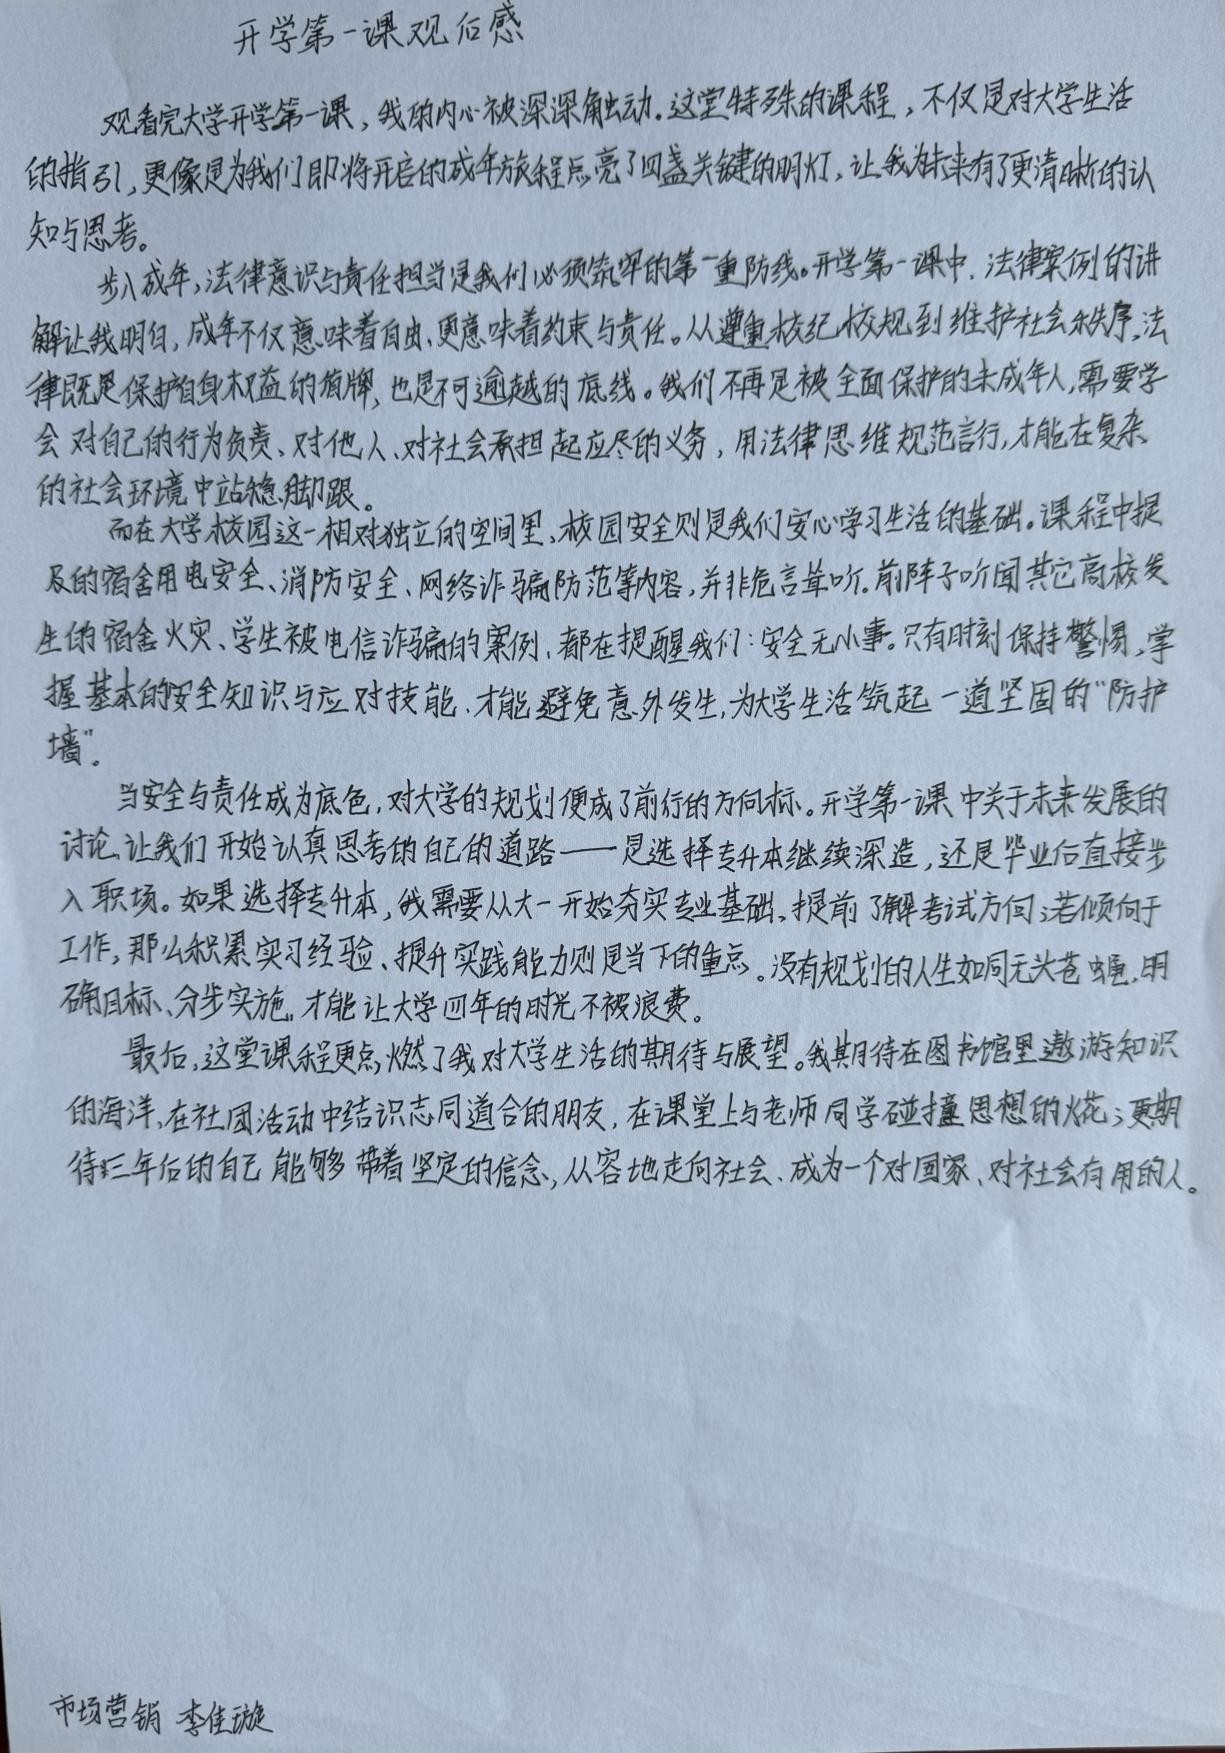 开学第一课观后感
观看完大学开学第一课，我的内心被深深触动。这堂特殊的课程，不仅是对大学生活
的指引，更像是为我们即将开启的成年旅程点亮了四盏关键的明灯，让我为未来有了更清晰的认
知与思考。
步入成年，法律意识与责任担当是我们必须筑牢的第一重防线。开学第一课中，法律案例的讲
解让我明白，成年不仅意味着自由、更意味着约束与责任。从遵重校纪校规到维护社会秩序，法
律既是保护自身权益的盾牌，也是不可逾越的底线。我们不再是被全面保护的未成年人，需要学
会对自己的行为负责、对他人、对社会承担起应尽的义务，用法律思维规范言行，才能在复杂
的社会环境中站稳脚跟。
而在大学校园这一相对独立的空间里，校园安全则是我们安心学习生活的基础。课程中提
及的宿舍用电安全、消防安全、网络诈骗防范等内容，并非危言耸听。前阵子听闻其它高校发
生的宿舍火灾、学生被电信诈骗的案例，都在提醒我们：安全无小事。只有时刻保持警惕，掌
握基本的安全知识与应对技能，才能避免意外发生，为大学生活筑起一道坚固的“防护
墙”。
当安全与责任成为底色，对大学的规划便成了前行的方向标。开学第一课中关于未来发展的
讨论，让我们开始认真思考的自己的道路——是选择专升本继续深造，还是毕业后直接步
入职场。如果选择专升本，我需要从大一开始夯实专业基础、提前了解考试方向；若倾向于
工作，那么积累实习经验、提升实践能力则是当下的重点。没有规划的人生如同无头苍蝇，明
确目标、分步实施，才能让大学四年的时光不被浪费。
最后，这堂课程更点燃了我对大学生活的期待与展望。我期待在图书馆里遨游知识
的海洋，在社团活动中结识志同道合的朋友，在课堂上与老师同学碰撞思想的火花；更期
待三年后的自己能够带着坚定的信念，从容地走向社会、成为一个对国家、对社会有用的人。
市场营销 李佳璇